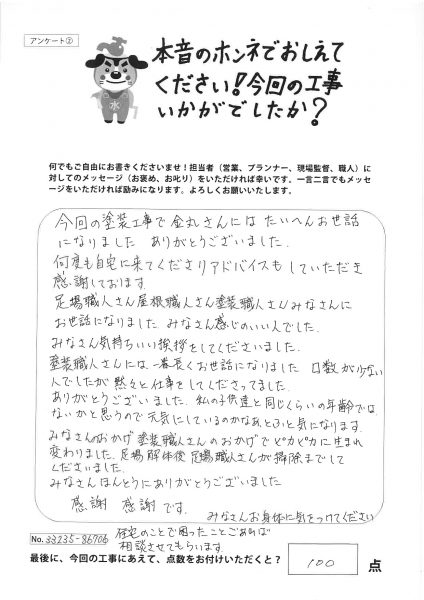 アンケート②
本音のホンネでおしえて
ください!今回の工事
いかがでしたか?
水
何でもご自由にお書きくださいませ!担当者(営業、プランナー、現場監督、職人)に
対してのメッセージ(お褒め、お叱り)をいただければ幸いです。一言二言でもメッセ
ージをいただければ励みになります。よろしくお願いいたします。
今回の塗装工事で金丸さんにはたいへんお世話
になりました ありがとうございました.
何度も自宅に来てくださりアドバイスもしていただき
感謝しております.
足場職人さん屋根職人さん塗装職人さんみなさんに
お世話になりました みなさん感じのいい人でした.
みなさん気持ちいい挨拶をしてくださいました.
塗装職人さんには、一番長くお世話になりました 口数が少ない
人でしたが黙々と仕事をしてくださってました.
ありがとうございました. 私の子供達と同じくらいの年齢では
ないかと思うので元気にしているのかなあとふと気になります.
みなさんのおかげ塗装職人さんのおかげでピカピカに生まれ
変わりました. 足場解体後足場職人さんが掃除までして
くださいました.
みなさんほんとうにありがとうございました
感謝 感謝です.
みなさんお身体に気をつけてください
住宅のことで困ったことごあれば
相談させてもらいます
No.33235-86706
最後に、今回の工事にあえて、点数をお付けいただくと? 100 点